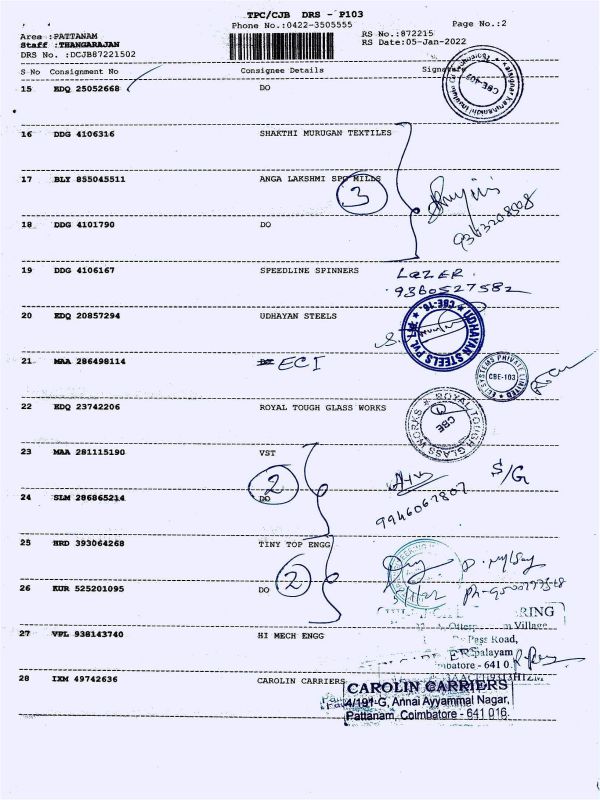 TPC/CJB DRS - P103
Phone No.:0422-3505555
Page No.:2
Area :PATTANAM
RS No.:872215
Staff :THANGARAJAN
RS Date:05-Jan-2022
DRS No. :DCJB87221502
S No Consignment No Consignee Details Signature
15 EDQ 25052668 DO
CBE-402
16 DDG 4106316 SHAKTHI MURUGAN TEXTILES
17 BLY 855045511 ANGA LAKSHMI SPG MILLS
3
18 DDG 4101790 DO
19 DDG 4106167 SPEEDLINE SPINNERS LAZER.
9360527582
20 EDQ 20857294 UDHAYAN STEELS
UDHAYAN STEELS PVT LTD CBE-16.
21 MAA 286498114 ECI
ECI SYSTEMS PRIVATE LIMITED CBE-103
22 EDQ 23742206 ROYAL TOUGH GLASS WORKS
ROYAL TOUGH GLASS WORKS CBE
23 MAA 281115190 VST
S/G
2
24 SLM 286865214 DO
9946067807
25 HRD 393064268 TINY TOP ENGG
2
26 KUR 525201095 DO
5/1/22
RING
Village
Pass Road,
palayam
mbatore - 641 0
27 VPL 938143740 HI MECH ENGG
28 IXM 49742636 CAROLIN CARRIERS
CAROLIN CARRIERS
4/191-G, Annai Ayyammal Nagar,
Pattanam, Coimbatore - 641 016.